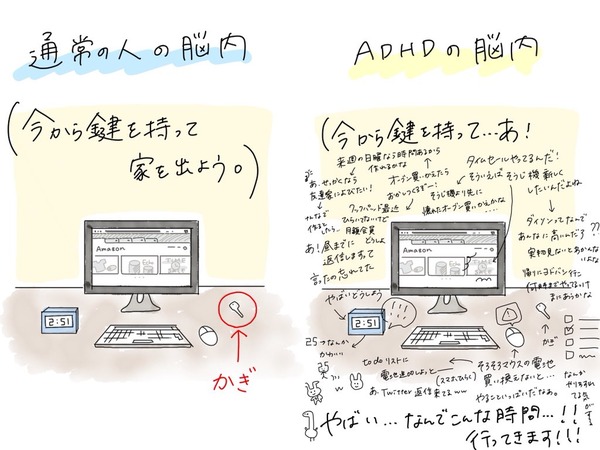 通常の人の脳内
(今から鍵を持って
家を出よう。)
Amazon
2:51
かぎ
ADHDの脳内
(今から鍵を持って…あ!
来週の日曜なら時間あるから
作れるかな
オーブン買いかえたら
おかしつくるぞー!
あ、せっかくなら
友達家によびたい!
タイムセールやってるんだ!
そういえばそうじ機新しく
したいんだよね
そうじ機より先に
壊れたオーブン買いかえなきゃ
クックパッド最近
ひらいてないけど
月額会員
どうしよ
みんなで
あ!昼までに
返信しますって
言ったの忘れてた
ダイソンってなんで
あんなに高いんだろ??
実物見ないとあかんな
帰りにヨドバシ行こ
何時までやってるんだっけ
Amazon
やばいどうしよう
2:51
25→なんか
かわいい
かぎ
to doリストに
電池追加しよっと
(スマホひらく)
そろそろマウスの電池
買い換えないと…
やることいっぱいだなあ。
あ、Twitter返信来てるww
w
やばい…なんでこんな時間…!!
行ってきます!!!